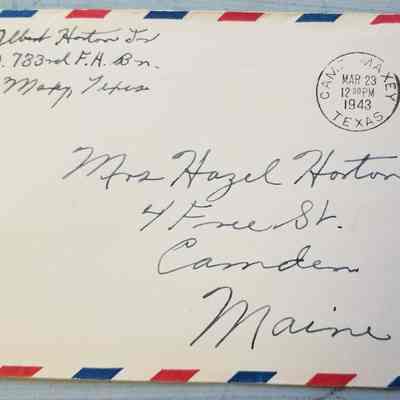 Albert Horton Jr
. 783rd F.A. Bn.
Maxey, Texas
CAMP MAXEY
MAR 23
12 PM
1943
TEXAS
Mrs Hazel Horton
4 Free St.
Camden
Maine